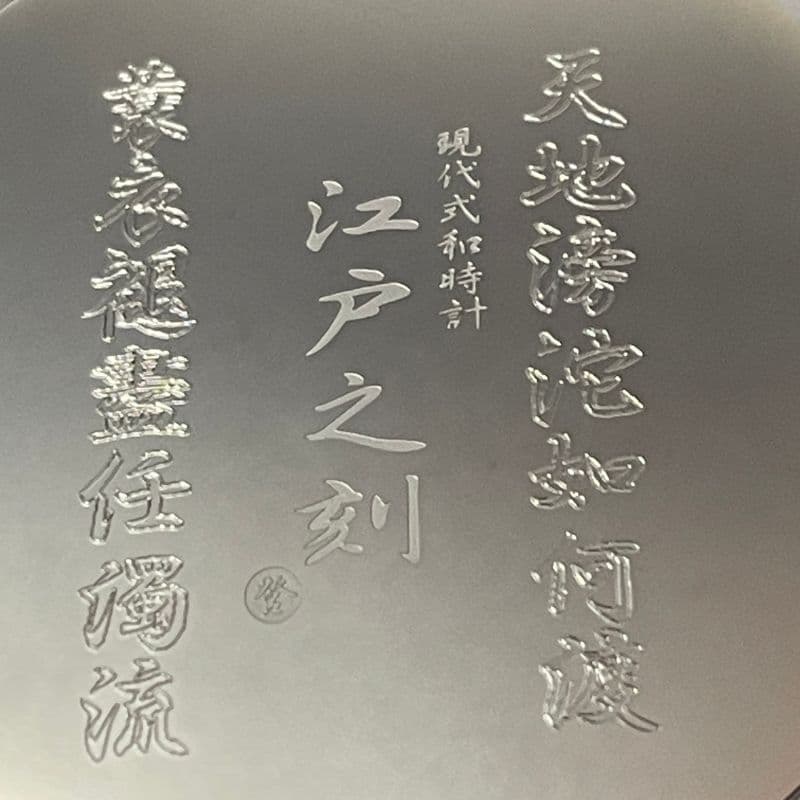 天地滂沱如何渡
現代式和時計
江戸之刻
蓑衣褪盡任濁流